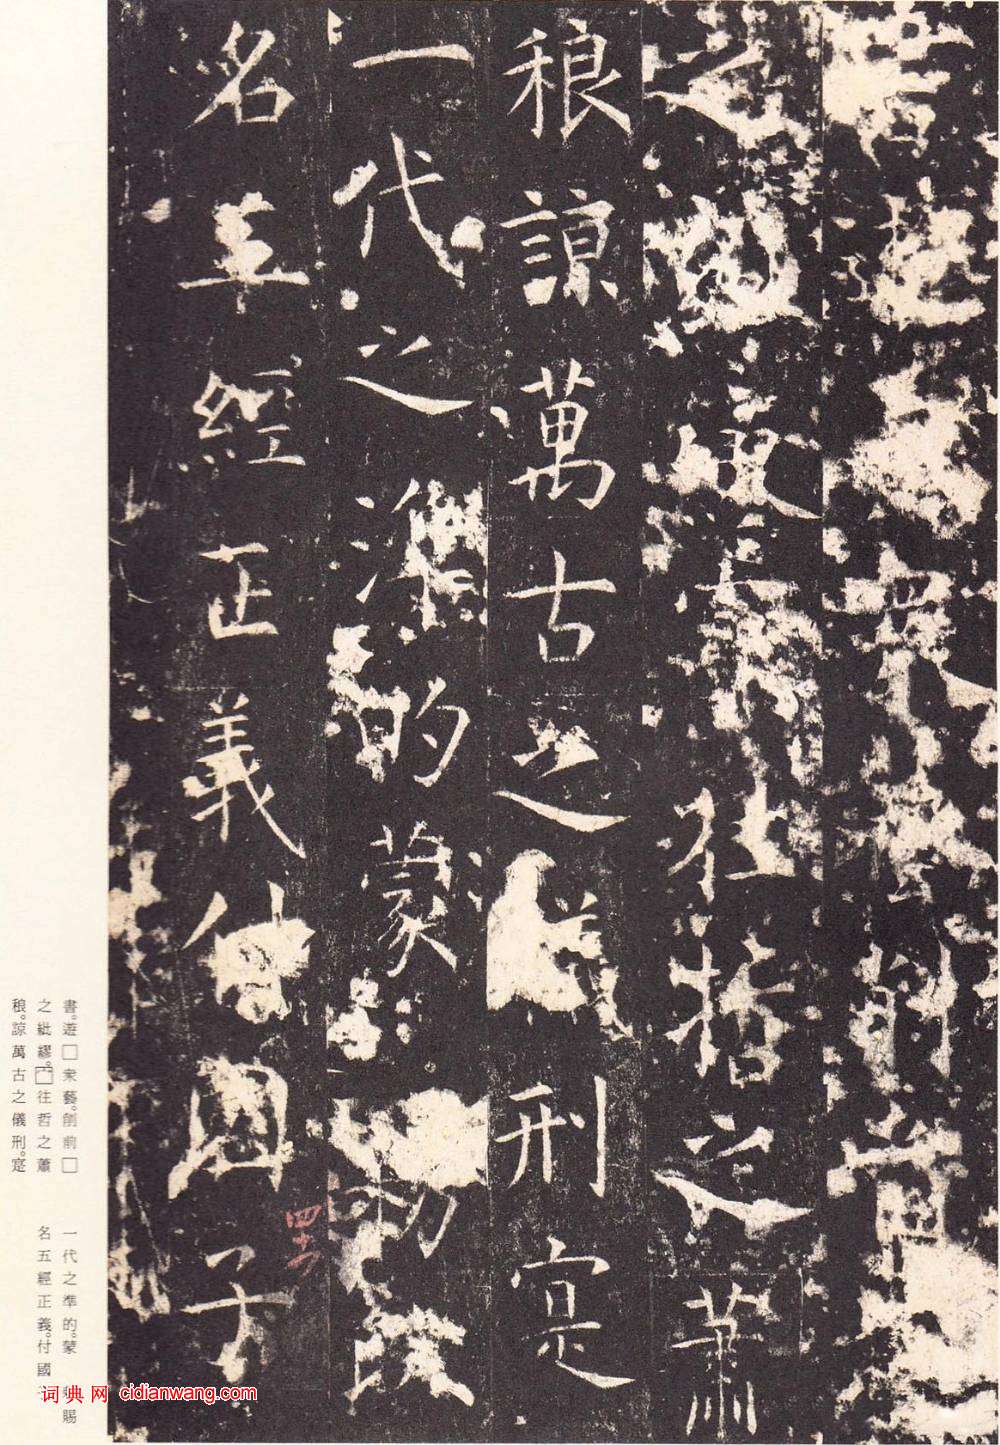 書遊衆藝削前
之紕繆往哲之蕭
稂諒萬古之儀刑寔
一代之準的蒙勑賜
名五經正義付國子
書。遊□衆藝。削前□
之紕繆。□往哲之蕭
稂。諒萬古之儀刑。寔
一代之準的。蒙賜
名五經正義。付國
词典网 cidianwang.com